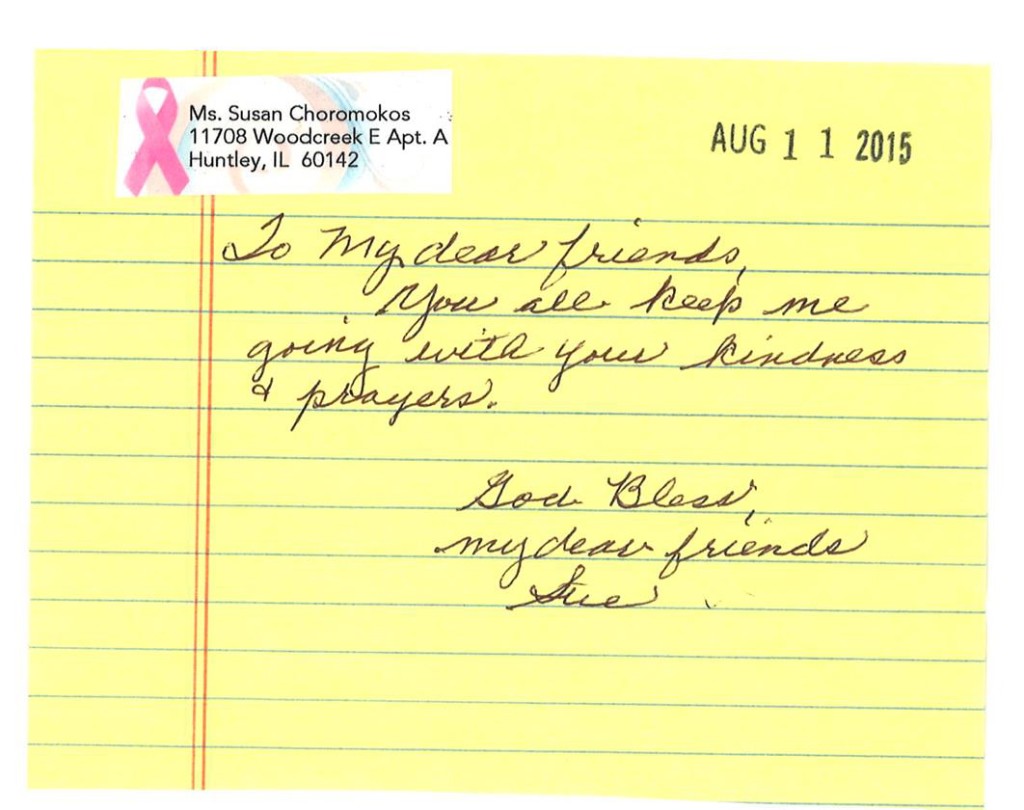 Ms. Susan Choromokos
11708 Woodcreek E Apt. A
Huntley, IL 60142
AUG 11 2015
To My dear friends,
You all keep me
going with your kindness
& prayers.
God Bless,
my dear friends
Sue